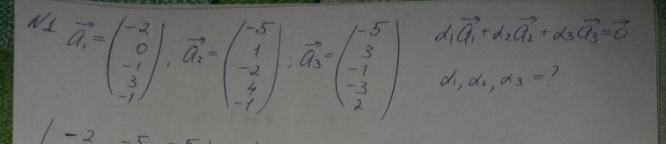 N1 \vec{a_1} = \begin{pmatrix} -2 \\ 0 \\ -1 \\ 3 \\ -1 \end{pmatrix}; \vec{a_2} = \begin{pmatrix} -5 \\ 1 \\ -2 \\ 4 \\ -1 \end{pmatrix}; \vec{a_3} = \begin{pmatrix} -5 \\ 3 \\ -1 \\ -3 \\ 2 \end{pmatrix} α₁\vec{a_1} + α₂\vec{a_2} + α₃\vec{a_3} = \vec{0}
α₁, α₂, α₃ = ?
-2 -5 -5